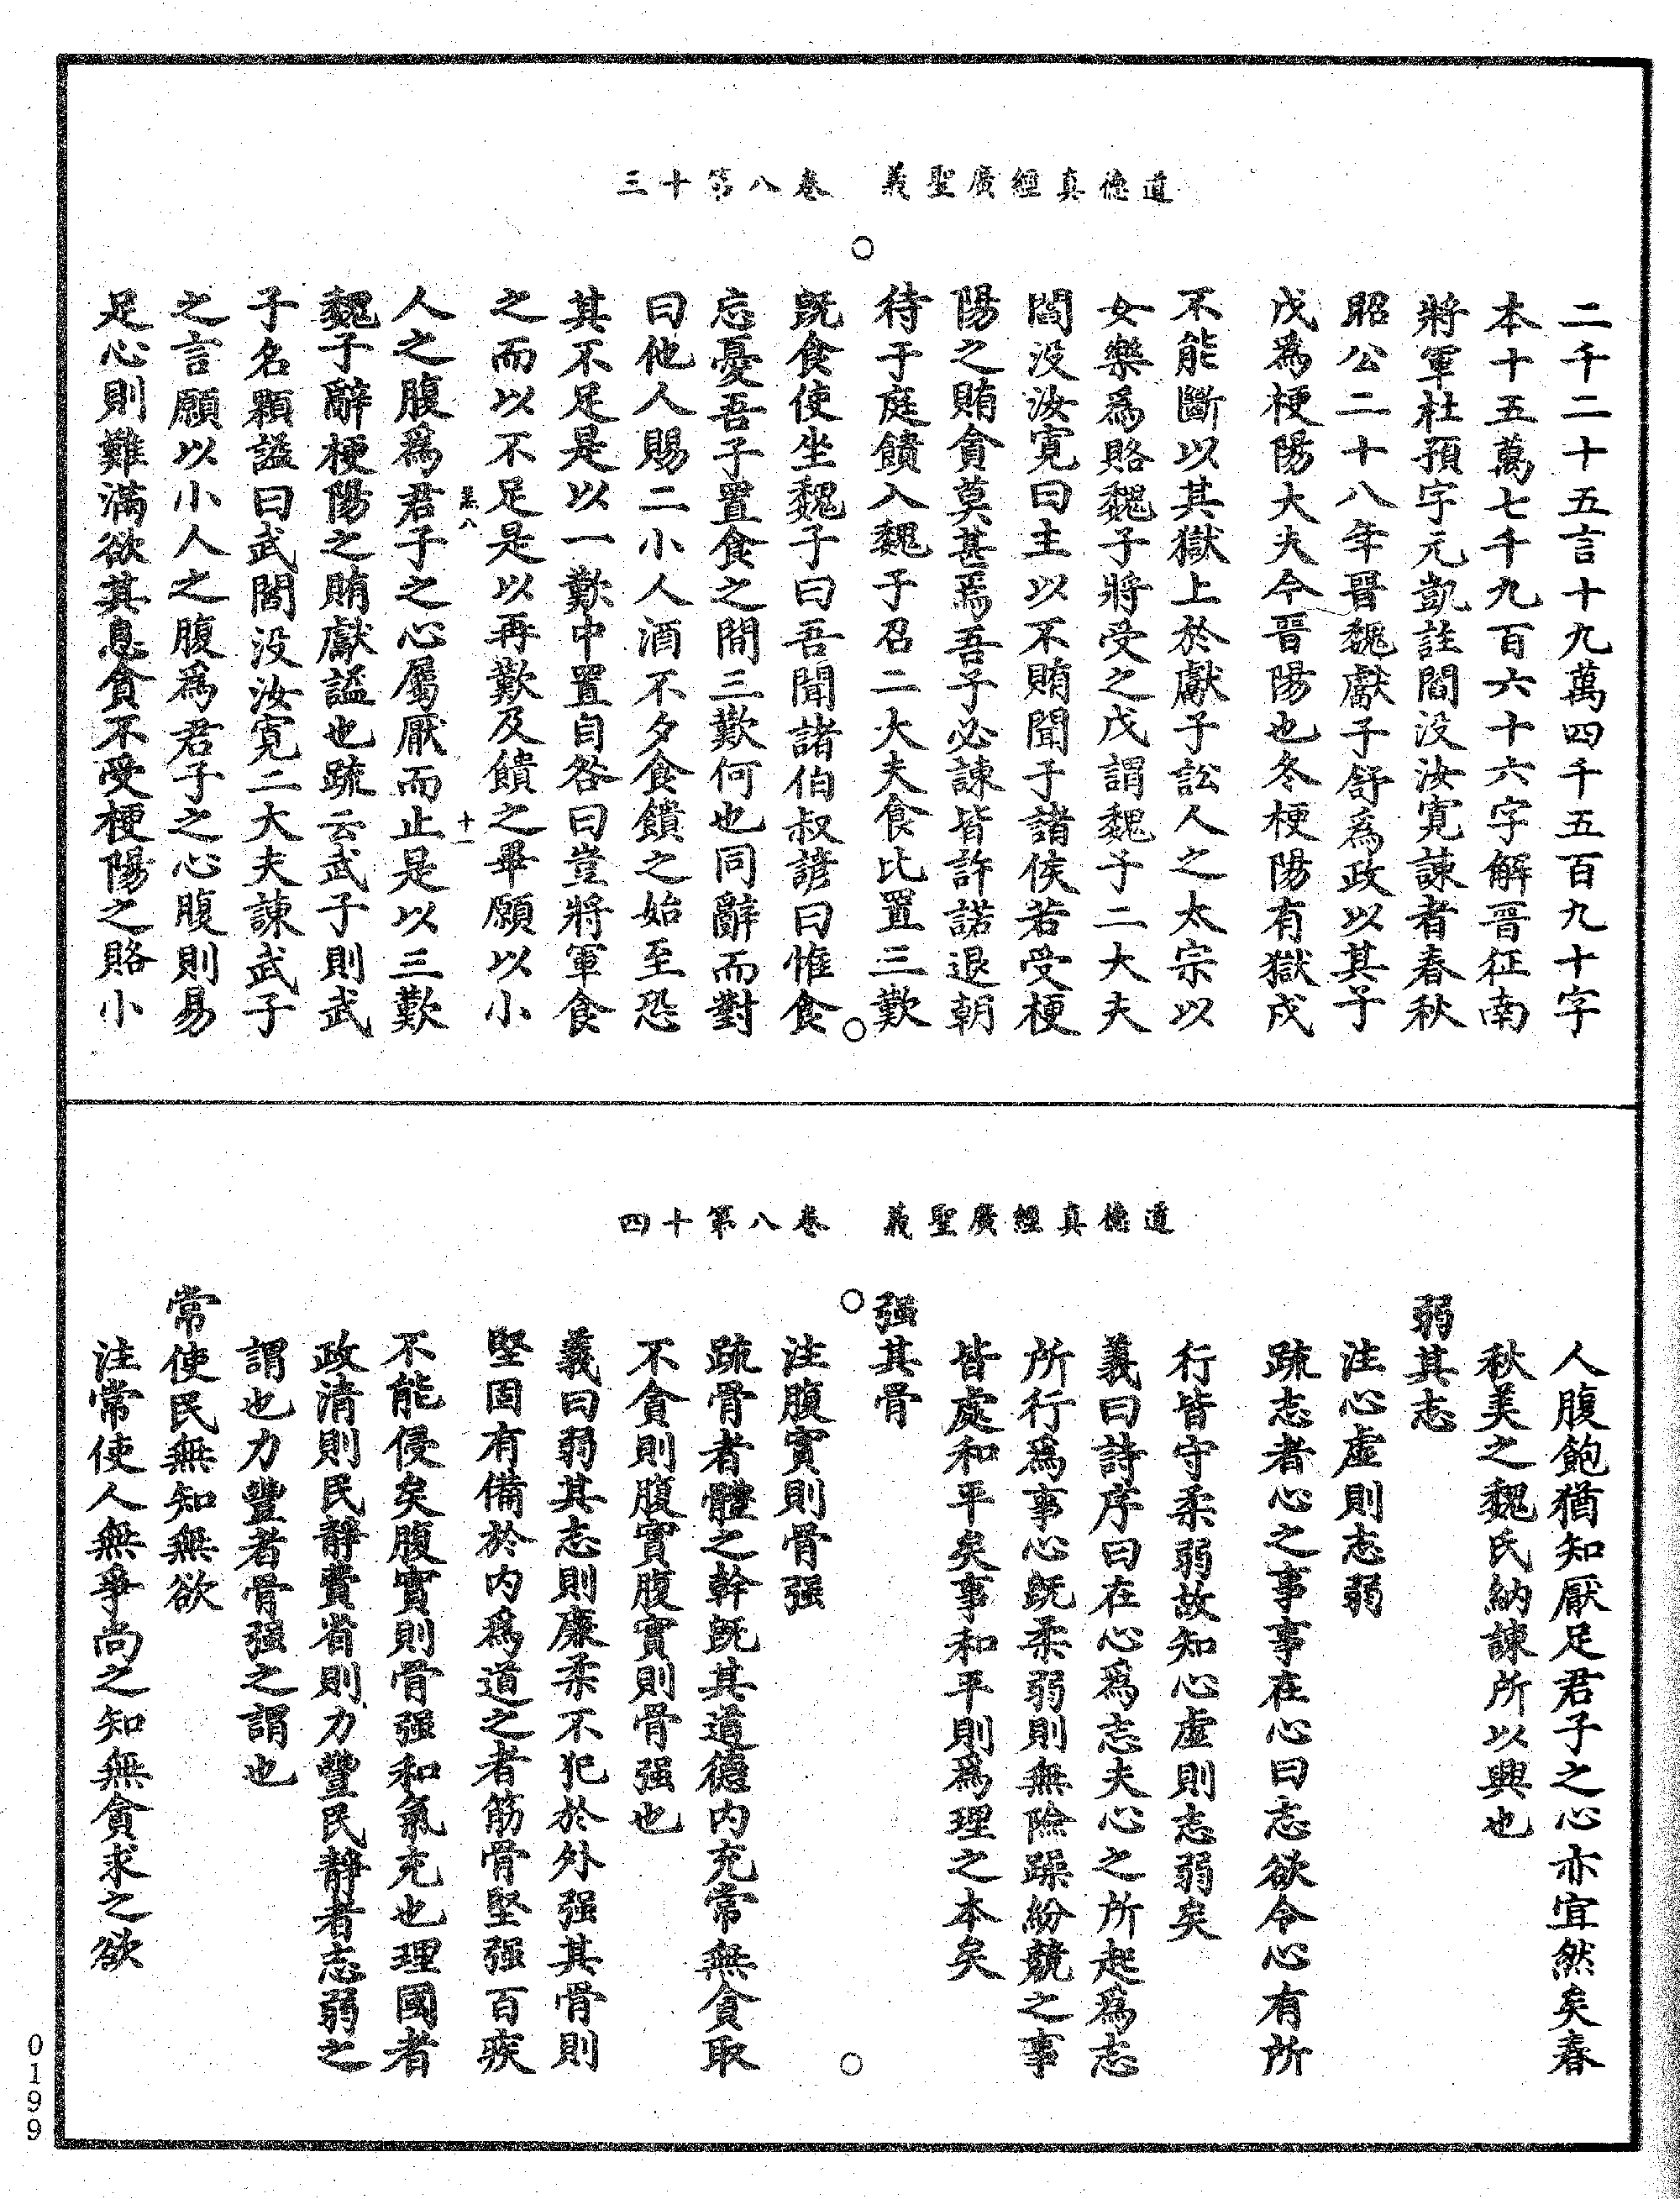 道德真經廣聖義　卷八第十三
二千二十五言十九萬四千五百九十字
本十五萬七千九百六十六字解晉征南
將軍杜預字元凱註閻没汝寛諫者春秋
昭公二十八年晉魏獻子舒為政以其子
戊為梗陽大夫今晉陽也冬梗陽有獄戊
不能斷以其獄上於獻子訟人之太宗以
女樂為賂魏子將受之戊謂魏子二大夫
閻没汝寛曰主以不賄聞于諸侯若受梗
陽之賄貪莫甚焉吾子必諫皆許諾退朝
待于庭饋入魏子召二大夫食比置三歎
既食使坐魏子曰吾聞諸伯叔諺曰惟食
忘憂吾子置食之間三歎何也同辭而對
曰他人賜二小人酒不夕食饋之始至恐
其不足是以一歎中置自咎曰豈將軍食
之而以不足是以再歎及饋之畢願以小
羔八　十一
人之腹爲君子之心屬厭而止是以三歎
魏子辭梗陽之賄獻謚也疏云武子則武
子名顆謚曰武閻没汝寛二大夫諫武子
之言願以小人之腹爲君子之心腹則易
足心則難滿欲其息貪不受梗陽之賂小
道德真經廣聖義　卷八第十四
人腹飽猶知厭足君子之心亦宜然矣春
秋美之魏氏納諫所以興也
弱其志
注心虛則志弱
疏志者心之事事在心曰志欲令心有所
行皆守柔弱故知心虛則志弱矣
義曰詩序曰在心爲志夫心之所起爲志
所行爲事心既柔弱則無險躁紛競之事
皆處和平矣事和平則爲理之本矣
强其骨
注腹實則骨强
疏骨者體之幹既其道德内充常無貪取
不貪則腹實腹實則骨强也
義曰弱其志則廉柔不犯於外强其骨則
堅固有備於内爲道之者筋骨堅强百疾
不能侵矣腹實則骨强和氣充也理國者
政清則民靜費省則力豐民靜者志弱之
謂也力豐者骨强之謂也
常使民無知無欲
注常使人無爭尚之知無貪求之欲
0199